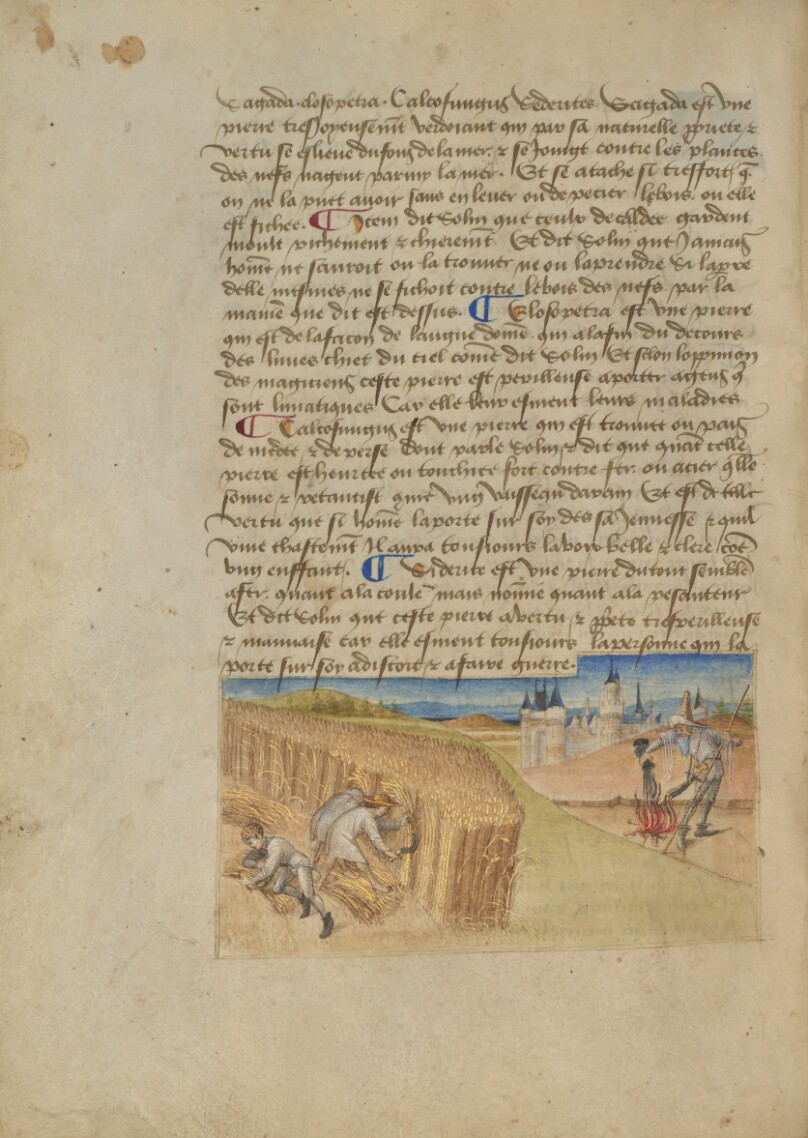 Sagada. closopetra. Calcofungus Sederites Sagada est une
pierre tres Joyeusemẽt verdoiant qui par sa naturelle p̃priete ⁊
vertu se eslieue du fons de la mer. ⁊ se Joingt contre les plances
des nefs nagent parmy la mer. Et se atache si tresfort q̃
on ne la puet auoir sans en leuer ou depecier le bois. ou elle
est fichee. ¶ Item dit Solin que ceulx de caldee gardent
moult richement ⁊ chieremẽt Et dit Solin que Jamais
hom̃e ne scauroit ou la trouuer ne ou la prendre Si la pre
delle mesmes ne se fichoit contre le bois des nefs par la
maniẽ que dit est dessus. ¶ Closopetra est une pierre
qui est de la facon de langue dom̃e qui a la fin du decours
des lunes chiet du ciel com̃e dit Solin Et selon loppinion
des magiciens ceste pierre est perilleuse a porter a gens q̃
sont lunatiques Car elle leur esment leurs maladies
¶ Calcofungus est une pierre qui est trouuee ou pais
de medee ⁊ de perse dont parle Solin ⁊ dit que quãt celle
pierre est heurtee ou touchiee fort contre fer. ou acier q̃lle
sonne ⁊ retantist cõme ung vaisseau darain Et est de telle
vertu que si hom̃e la porte sur soy des sa Jennesse ⁊ quil
viue chastemẽt Il aura tousiours la voix belle ⁊ clere cõe
ung enffant. ¶ Siderite est une pierre du tout semblẽ
a fer. quant a la coulẽ mais nom̃e quant a la pesanteur
Et dit Solin que ceste pierre a vertu ⁊ p̃priete tresperilleuse
⁊ mauuaise car elle esment tousiours la personne qui la
porte sur soy a discort ⁊ a faire guerre.